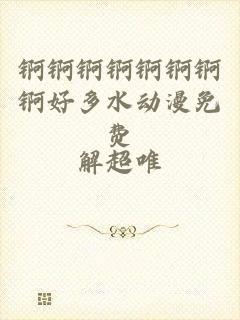 锕锕锕锕锕锕锕
锕好多水动漫免
费
解超唯